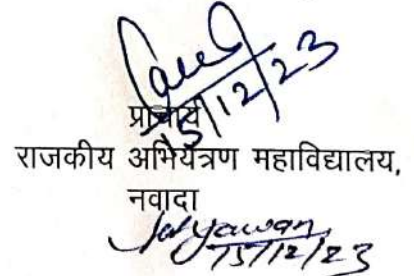 15/12/23
प्राचार्य
राजकीय अभियंत्रण महाविद्यालय,
नवादा
Satyawan
15/12/23